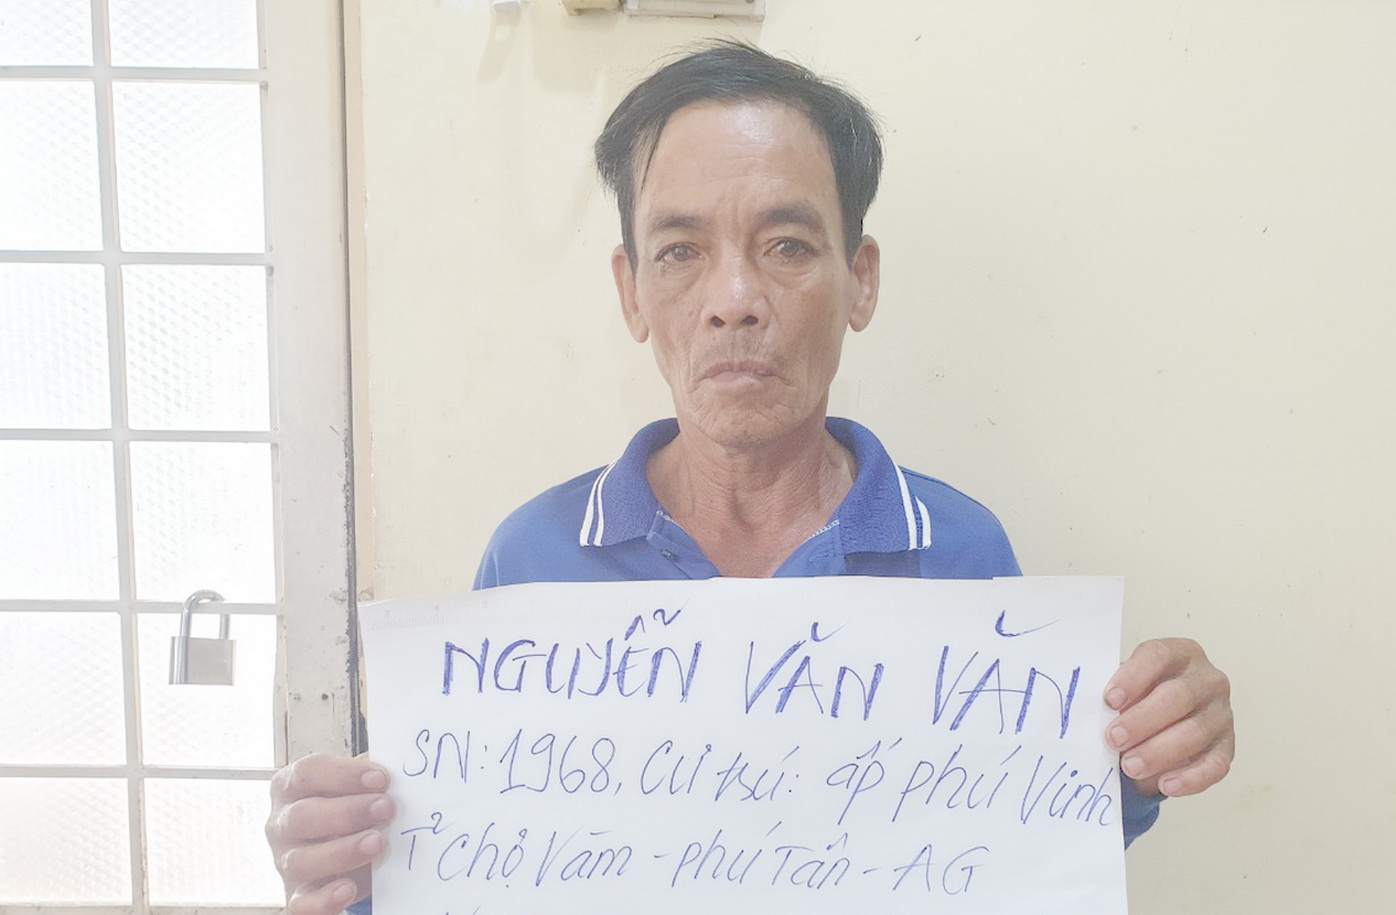 NGUYỄN VĂN VĂN
SN: 1968, Cư trú: ấp phú Vinh
Chợ Vàm - phú Tân - AG